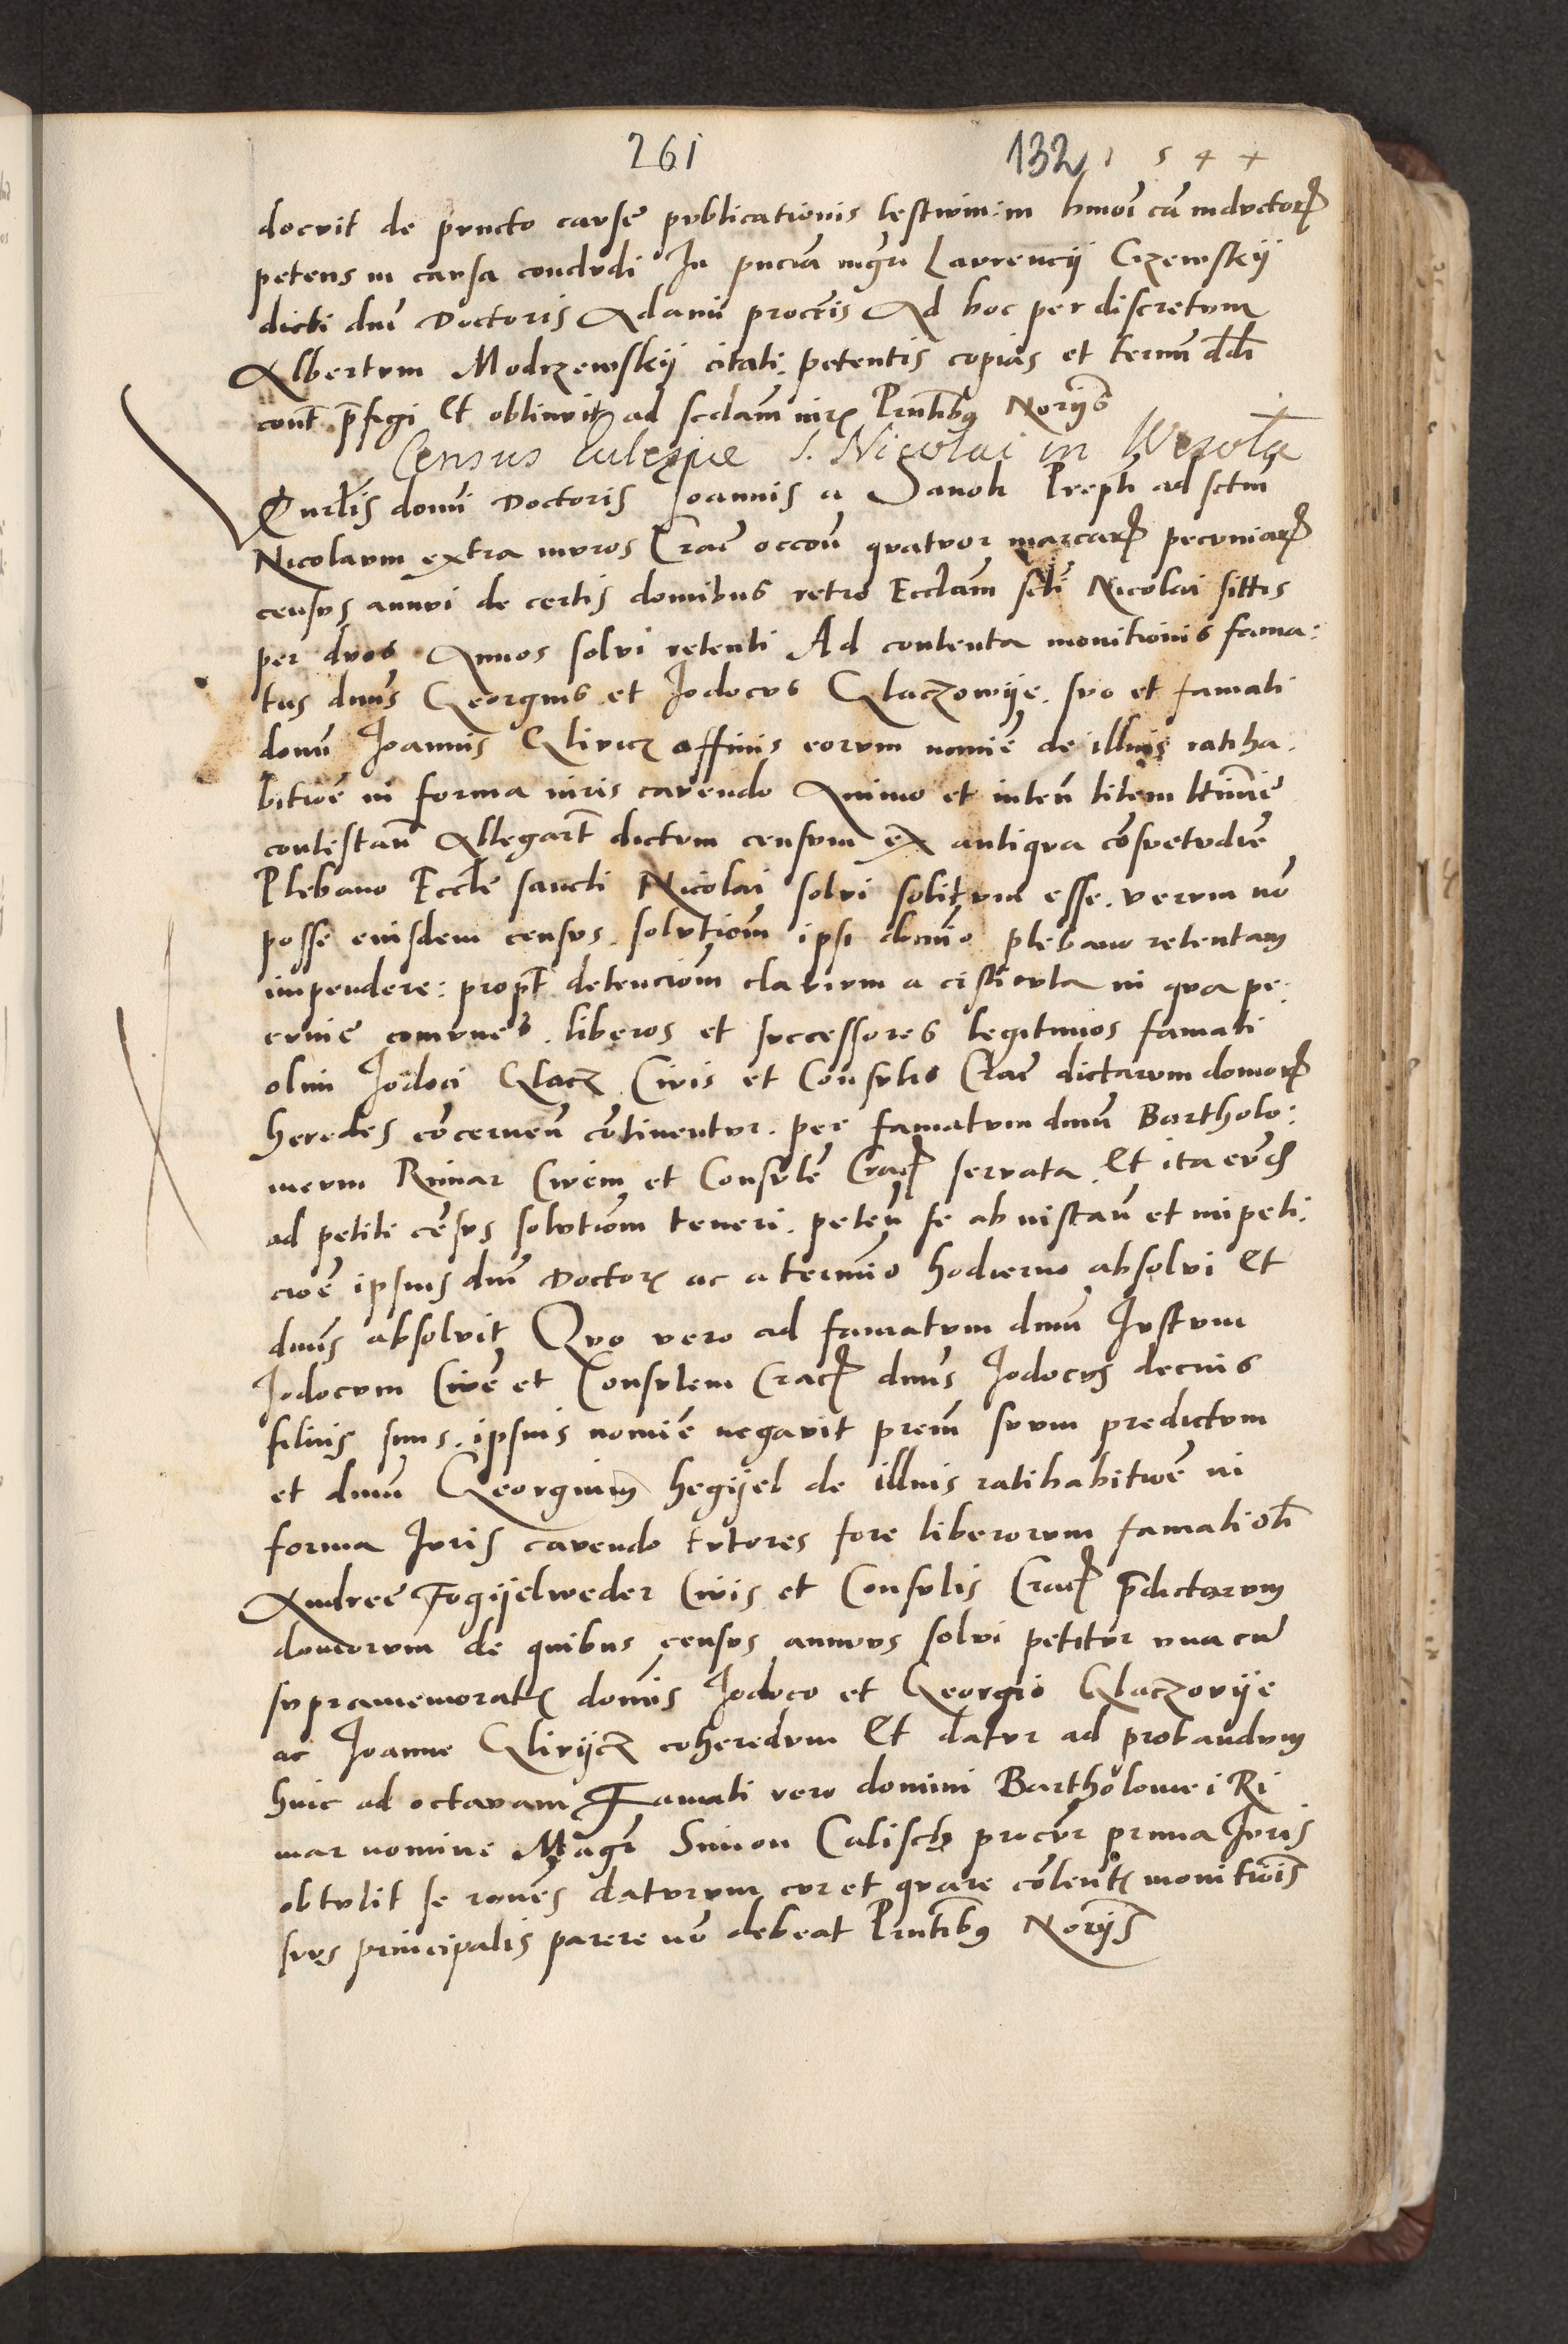 261 132 1 5 4 4
docuit de puncto cause publicationis testium: in hmoi cā inductoꝝ
petens in causa concludi In pnciā mgri Laurencij Czewskij
dicti dni Doctoris Adami procris Ad hoc per discretum
Albertum Modrzewskij citati. petentis copias et termn ddi
cont p̄figi Et obtinuit ad scdam iurꝭ Pntibꝰ Norijs
Census Ecclesiae S. Nicolai in Wesoła
domi Doctoris Joannis a Sanok Prepti ad sctm
Nicolaum extra muros Crac occoe quatuor marcaꝝ pecuniaꝝ
census annui de certis domibus retro Eccliam scti Nicolai sittis
per duos Annos solui retenti Ad contenta monitionis fama:
tus dnus Georgius et Jodocus Glaczowije. suo et famati
domi Joannis Glivicz affinis eorum nomīe de illius ratiha
bitioē in forma iuris cavendo Animo et inten litem ltimīe
contestan̄ Allegart dictum censum ex antiqua cōsuetudīe
Plebano Eccle sancti Nicolai solui solitum esse. verum nō
posse eiusdem census. solutiom̄ ipsi domīo plebano retentam
impendere: propt̄ detenciom̄ clavium a cisticula in qua pe:
cunie comunes. liberos et successores legitimos famati
olim Jodoci Glacz Civis et Consulis Crac̄ dictarum domoꝝ
heredes cōcernen̄ cōtinentur. per famatum dnm̄ Bartholo:
meum Rimar Civem et Consulē Crac̄ servata. Et ita eūd
ad petiti cēsus solutiom̄ teneri. peten̄ se ab instan̄ et impeti:
cioē ipsius dni Doctorꝭ ac a termīo hodierno absolui Et
dnus absoluit Quo vero ad famatum dnm̄ Justum
Jodocum Civē et Consulem Crac̄ dnus Jodocus decius
filius suus. ipsius nomīe negavit prem̄ suum predictum
et dnm̄ Georgium hegijel de illius ratihabitioē in
forma Juris cavendo tutores fore liberorum famati olī
Andree Fogijelweder Civis et Consulis Crac̄ p̄dictarum
domorum de quibus census annuus solui petitur una cū
supramemoratꝭ domīs Jodoco et Georgio Glaczovije
ac Joanne Glivijcz coheredum Et datur ad probandum
huic ad octavam Famati vero domini Bartholomei Ri
mar nomine Magr̄ Simon Calisch procur̄ prima Juris
obtulit se rōnes daturum cur et quare cōtentꝭ monitiōis
suus principalis parere nō debeat Pntibꝰ Norijs